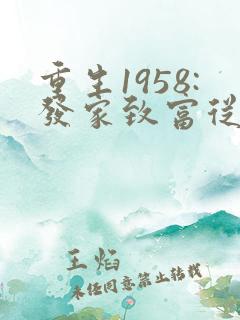 重生1958:
發家致富從
王焰
未经同意禁止转载